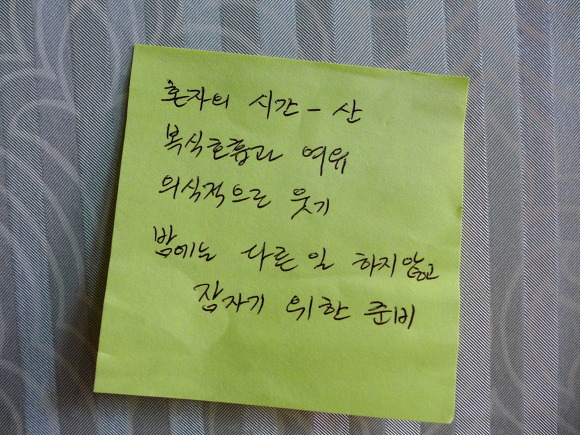 혼자의 시간 - 산
복식호흡과 여유
의식적으로 웃기
밤에는 다른 일 하지않고
잠자기 위한 준비